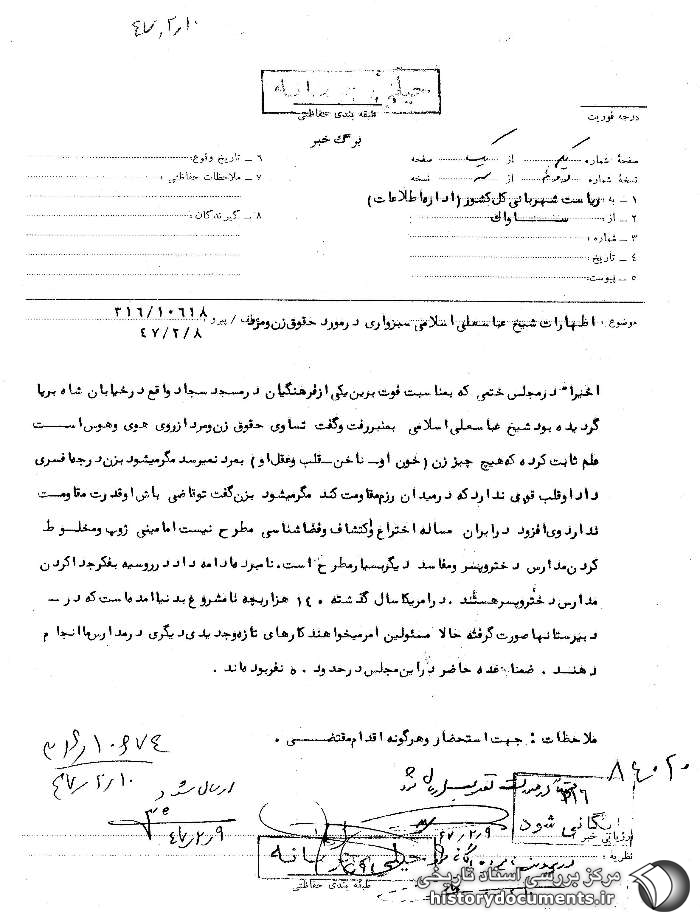 ۴۷/۲/۱۰
خیلی محرمانه
طبقه بندی حفاظتی
برگ خبر
درجه فوریت
صفحه شماره یکم از یک صفحه
نسخه شماره از نسخه
۱ – به ریاست شهربانی کل کشور (اداره اطلاعات)
۲ – از: ساواک
۳ – شماره:
۴ – تاریخ:
۵ – پیوست:
۶ – تاریخ وقوع:
۷ – ملاحظات حفاظتی:
۸ – گیرندگان:
موضوع: اظهارات شیخ عباسعلی اسلامی سبزواری در مورد حقوق زن و مرد
پیرو ۳۱۶/۱۰۶۱۸
۴۷/۲/۸
اخیراً در مجلس ختمی که بمناسبت فوت یکی از فرهنگیان در مسجد سجاد واقع در خیابان شاه برپا
گردیده بود شیخ عباسعلی اسلامی بمنبر رفت و گفت تساوی حقوق زن و مرد از روی هوی و هوس است
علم ثابت کرده که هیچ چیز زن (خون او – ناخن – قلب و عقل او) بمرد نمیرسد مگر میشود بزن درجه افسری
داد او قلب قوی ندارد که در میدان رزم مقاومت کند مگر میشود بزن گفت تو قاضی باش او قدرت مقاومت
ندارد وی افزود در ایران مساله اختراع و اکتشاف و فضاشناسی مطرح نیست اما مینی ژوپ و مخلوط
کردن مدارس دختر و پسر و مفاسد دیگر بسیار مطرح است. نامبرده ادامه داد در روسیه بفکر جدا کردن
مدارس دختر و پسر هستند. در امریکا سال گذشته ۱۴۰ هزار بچه نامشروع بدنیا آمده است که در –
دبیرستانها صورت گرفته حالا مسئولین امر میخواهند کارهای تازه و جدیدی دیگری در مدارس ما انجام
دهند. ضمنا عده حاضر در این مجلس در حدود ۵۰ نفر بوده اند.
ملاحظات: جهت استحضار و هرگونه اقدام مقتضی.
۳۱۶/۱۰۶۷۴
۴۷/۲/۱۰
ارسال شود
۴۷/۲/۹
۴۷/۲/۹
۳۱۶
بایگانی شود
ارزیابی خبر
نظریه:
خیلی محرمانه
طبقه بندی حفاظتی
مرکز بررسی اسناد تاریخی
historydocuments.ir